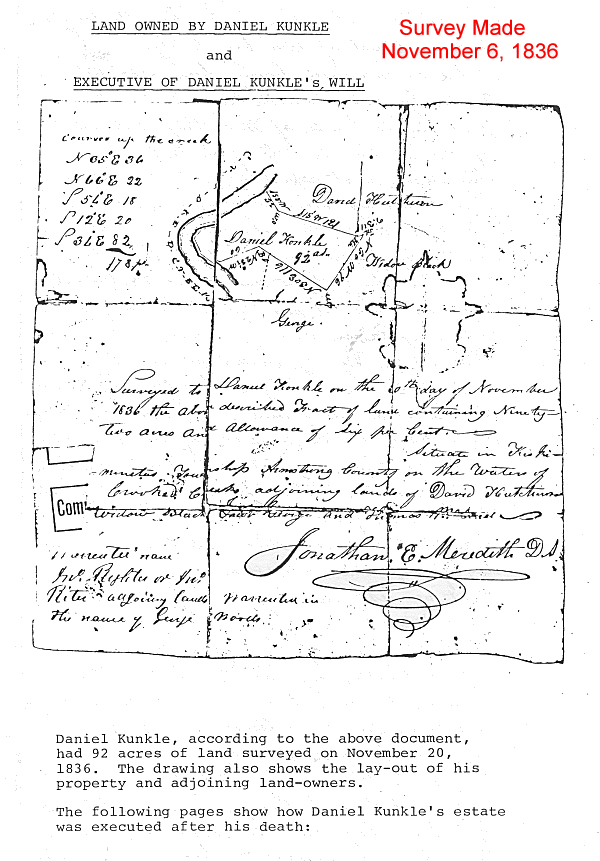 LAND OWNED BY DANIEL KUNKLE
and
EXECUTIVE OF DANIEL KUNKLE's WILL
Survey Made
November 6, 1836
Courses up the creek
N 35 E 36
N 66 E 22
S 54 E 18
S 12 E 20
S 34 E 82
178
David Hutchison
Daniel Konkle
92 as.
Widow Black
George
Surveyed to Daniel Konkle on the day of November
1836 the above described Tract of land containing Ninety
two acres and Allowance of six per Cent
Situate in Kiski-
minetas Township Armstrong County on the Waters of
Crooked Creek, adjoining lands of David Hutchison
Widow Black George and Thomas
Com
Jonathan E. Meredith D.S.
Warrentee name
Jno. or Jno.
adjoining lands Warrented in
the name of George Woods
Daniel Kunkle, according to the above document,
had 92 acres of land surveyed on November 20,
1836. The drawing also shows the lay-out of his
property and adjoining land-owners.
The following pages show how Daniel Kunkle's estate
was executed after his death: